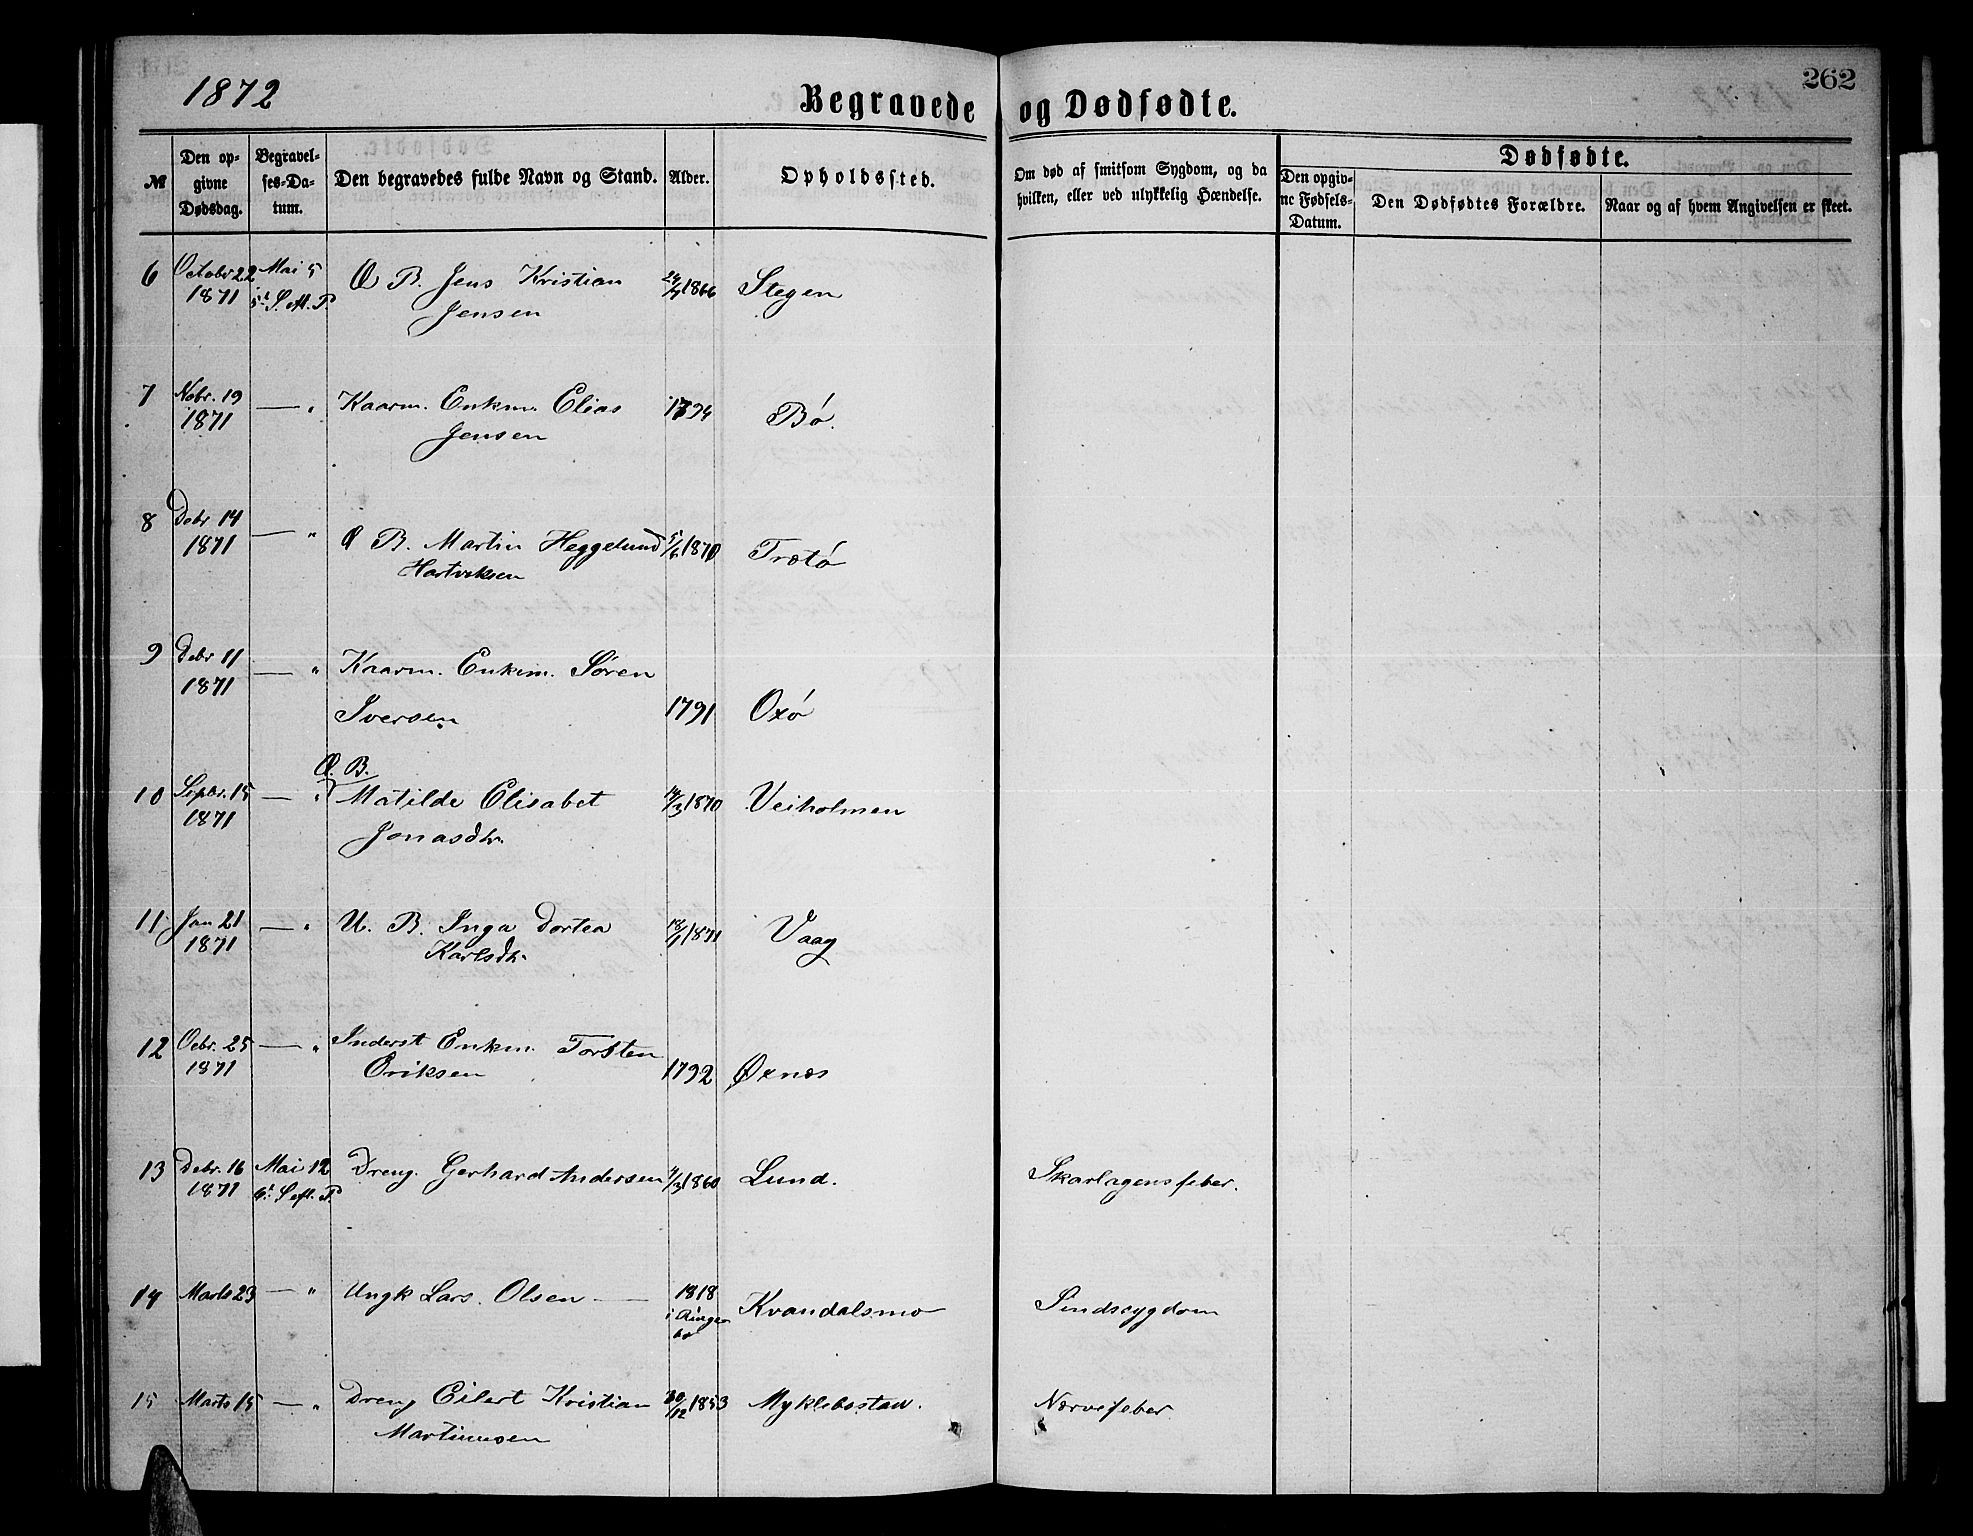 1872
Begravede og Dødfødte.
262
№
Den op-
givne
Dødsdag.
Begravel-
ses-Da-
tum.
Den begravedes fulde Navn og Stand.
Alder.
Opholdssted.
Om død af smitsom Sygdom, og da
hvilken, eller ved ulykkelig Hændelse.
Dødfødte.
Den opgiv-
ne Fødsels-
Datum.
Den Dødfødtes Forældre.
Naar og af hvem Angivelsen er skeet.
6 Octobr 22 Mai 5 Æ B. Jens Kristian 1866 Stegen
1871 5t S. Aft. P.
Jensen
7 Nobr. 19 — " Kaarm. Enkm. Elias 1794 Bø.
1871 Jensen
8 Debr 14 — " Æ B. Martin Heggelund 5/6 1870 Trætø
1871 Hartviksen
9 Debr 11 — " Kaarm. Enkem. Søren
1871
Iversen. 1791 Oxø
Æ. B.
10 Sepbr. 15 — " Matilde Elisabet 14/3 1870 Veiholmen
1871
Jonasdtr.
11 Jan 21 — " U. B. Inga Dortea 18/1 1871 Vaag
1871 Karlsdtr.
12 Ocbr. 25 — " Inderst Enkm. Torsten
1871 Eriksen 1792 Øxnæs
13 Debr. 16 Mai 12 Dreng. Gerhard Andersen 4/3 1860 Lund. Skarlagensfeber.
1871 6t S. eft. P
14 Marts 23 — " Ungk Lars Olsen — 1818 Kvandalsmo Sindssygdom
i Ringe
bo
15 Marts 15 — " Dreng Eilert Kristian 20/12 1853 Myklebostad. Nervefeber.
Martinusen